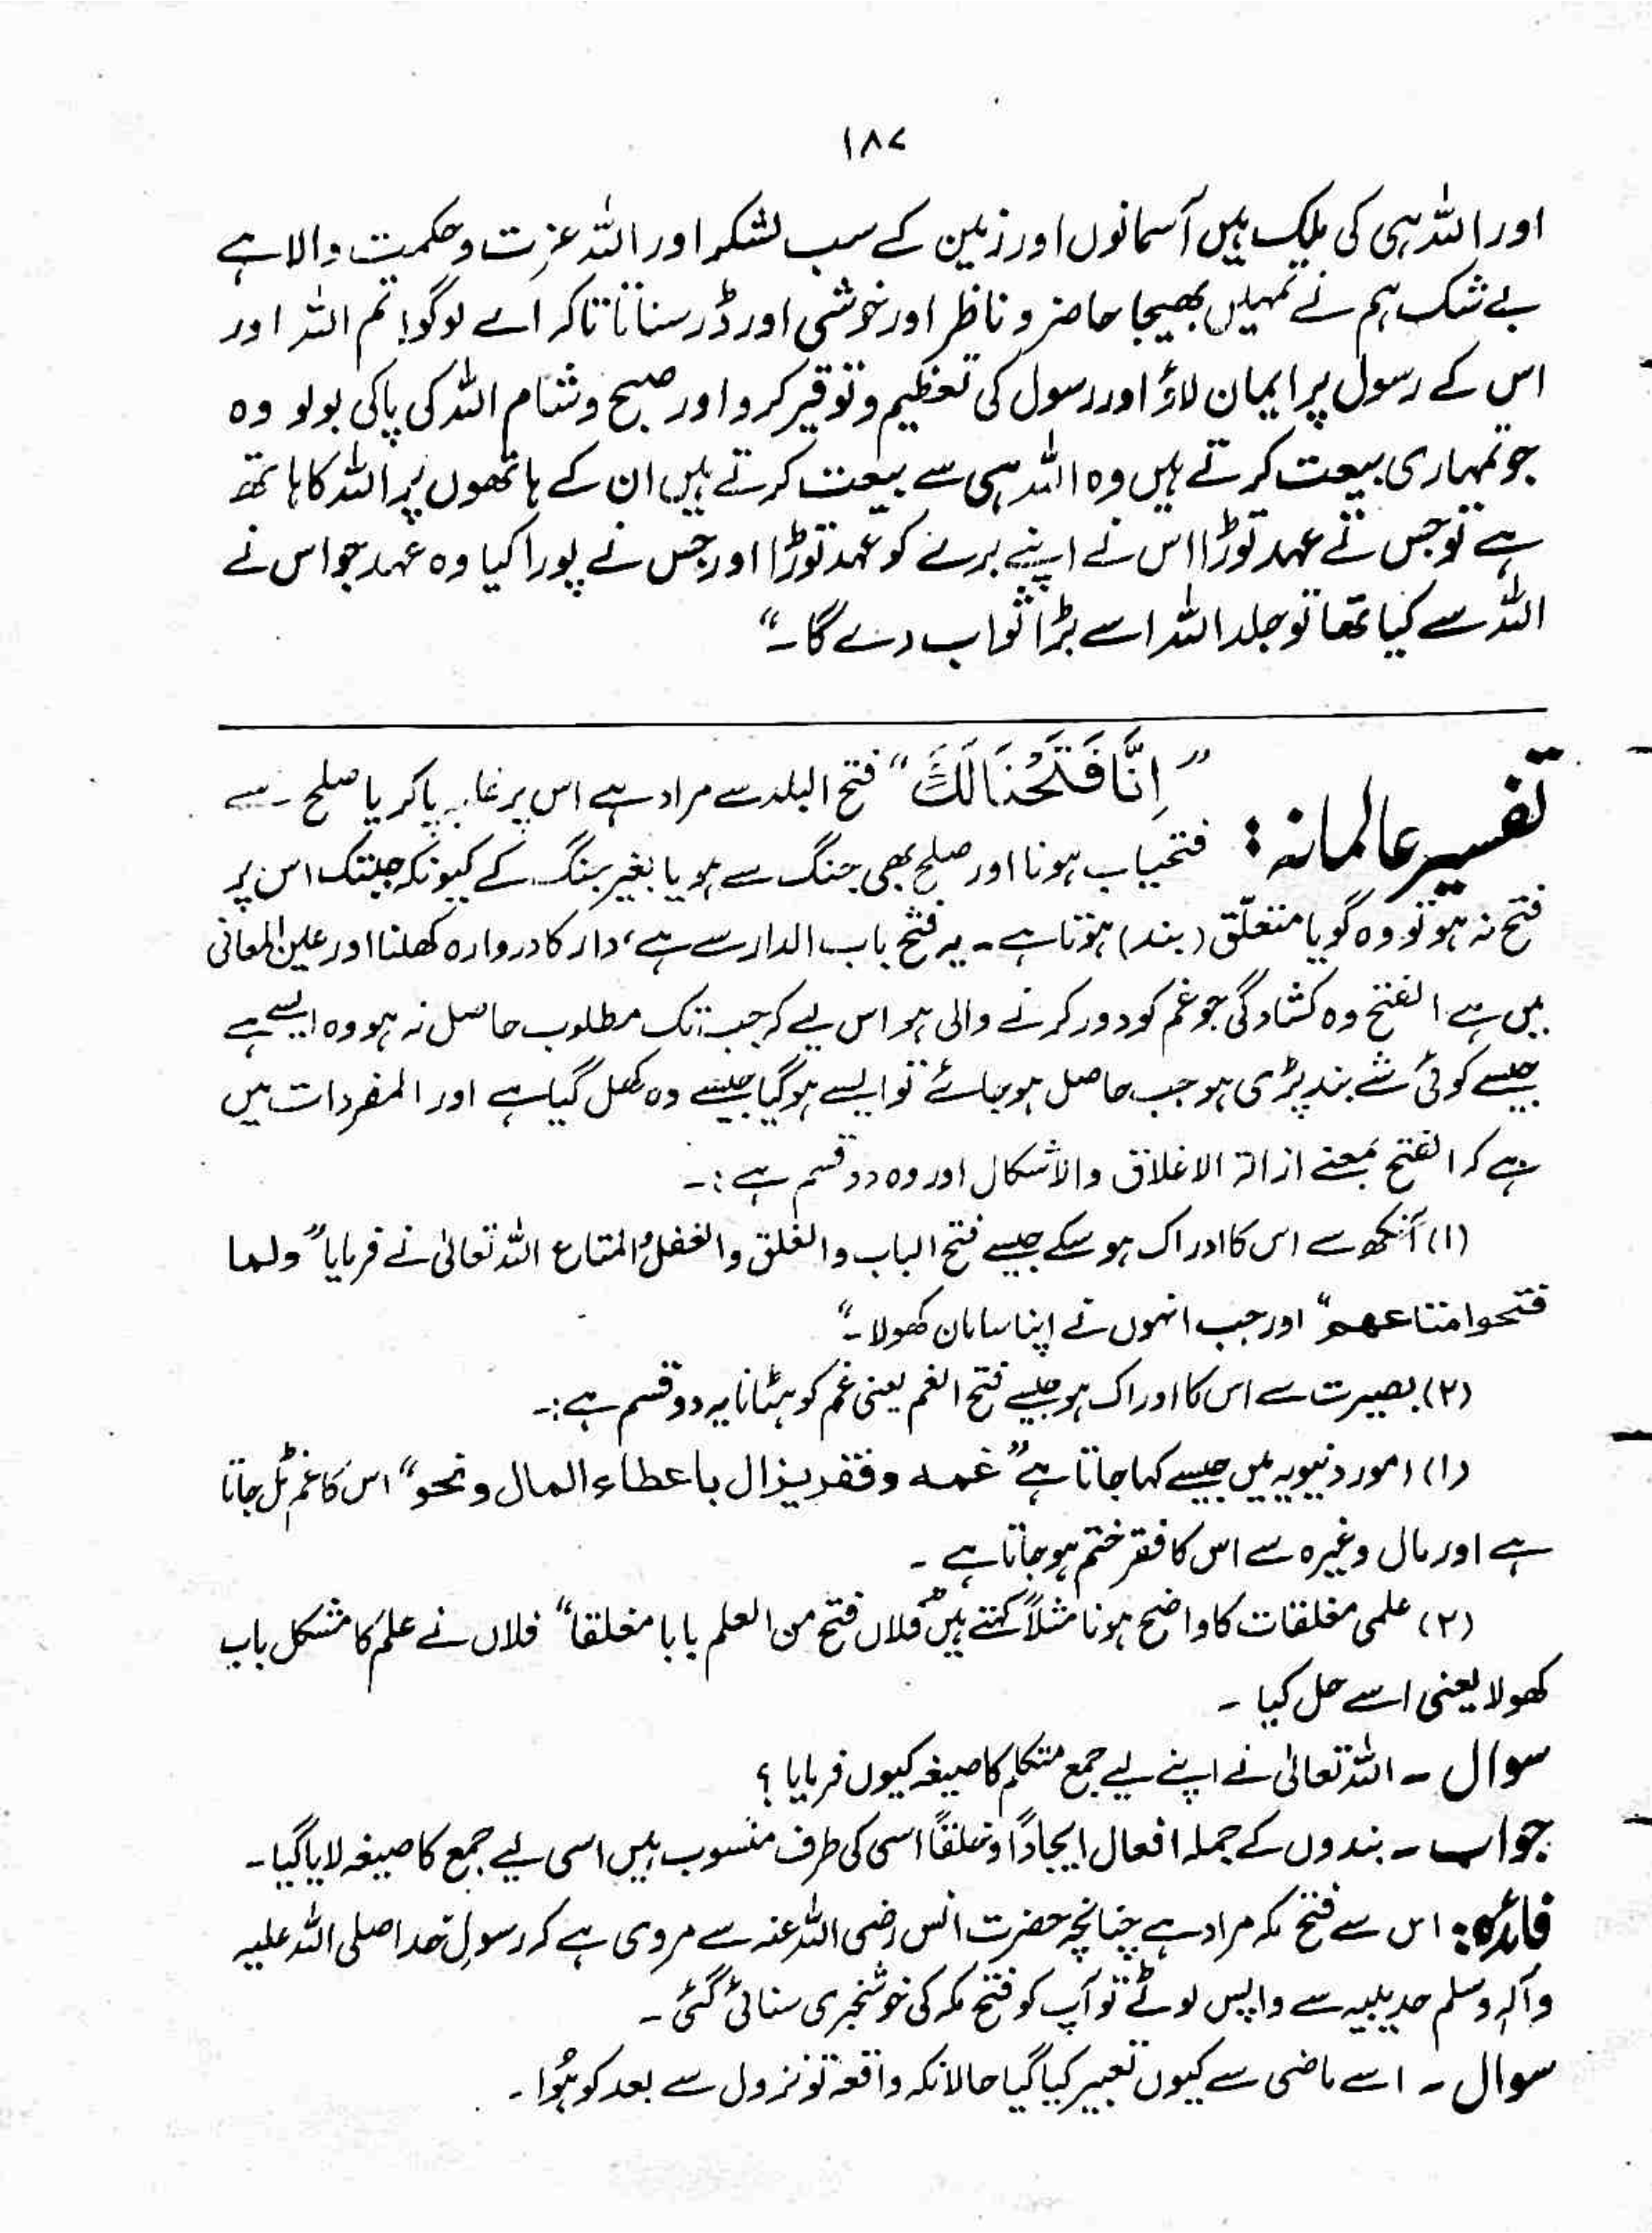 ۱۸۷
اور اللہ ہی کی ملک ہیں آسمانوں اور زمین کے سب لشکر اور اللہ عزت و حکمت والا ہے
بے شک ہم نے تمہیں بھیجا حاضر و ناظر اور خوشی اور ڈر سناتا تاکہ اے لوگو! تم اللہ اور
اس کے رسول پر ایمان لاؤ اور رسول کی تعظیم و توقیر کرو اور صبح و شام اللہ کی پاکی بولو وہ
جو تمہاری بیعت کرتے ہیں وہ اللہ ہی سے بیعت کرتے ہیں ان کے ہاتھوں پر اللہ کا ہاتھ
ہے تو جس نے عہد توڑا اس نے اپنے برے کو عہد توڑا اور جس نے پورا کیا وہ عہد جو اس نے
اللہ سے کیا تھا تو جلد اللہ اسے بڑا ثواب دے گا۔“
تفسیر عالمانہ : ”اِنَّا فَتَحْنَا لَكَ“ فتح البلد سے مراد ہے اس پر غلبہ پا کر یا صلح سے
فتحیاب ہونا اور صلح بھی جنگ سے ہو یا بغیر جنگ کے کیونکہ جبتک اس پر
فتح نہ ہو تو وہ گویا متغلّق (بند) ہوتا ہے۔ یہ فتح باب الدار سے ہے، دار کا دروازہ کھلنا اور عین المعانی
میں ہے الفتح وہ کشادگی جو غم کو دور کرنے والی ہو اس لیے کہ جب تک مطلوب حاصل نہ ہو وہ ایسے ہے
جیسے کوئی شے بند پڑی ہو جب حاصل ہو جائے تو ایسے ہو گیا جیسے وہ کھل گیا ہے اور المفردات میں
ہے کہ الفتح بمعنے ازالۃ الاغلاق والاشکال اور وہ دو قسم ہے :۔
(۱) آنکھ سے اس کا ادراک ہو سکے جیسے فتح الباب والغلق والقفل والمتاع اللہ تعالیٰ نے فرمایا ”ولما
فتحوا متاعهم“ اور جب انہوں نے اپنا سامان کھولا۔“
(۲) بصیرت سے اس کا ادراک ہو جیسے فتح الغم یعنی غم کو ہٹانا یہ دو قسم ہے :۔
(۱) امور دنیویہ میں جیسے کہا جاتا ہے ”غمه وفقر يزال باعطاء المال ونحو“ اس کا غم ٹل جاتا
ہے اور مال وغیرہ سے اس کا فقر ختم ہو جاتا ہے ۔
(۲) علمی مغلقات کا واضح ہونا مثلاً کہتے ہیں ”فلاں فتح من العلم بابا مغلقا“ فلاں نے علم کا مشکل باب
کھولا یعنی اسے حل کیا ۔
سوال ۔ اللہ تعالیٰ نے اپنے لیے جمع متکلم کا صیغہ کیوں فرمایا ؟
جواب ۔ بندوں کے جملہ افعال ایجاداً و خلقاً اسی کی طرف منسوب ہیں اسی لیے جمع کا صیغہ لایا گیا۔
فائدہ : اس سے فتح مکہ مراد ہے چنانچہ حضرت انس رضی اللہ عنہ سے مروی ہے کہ رسولِ خدا صلی اللہ علیہ
وآلہٖ وسلم حدیبیہ سے واپس لوٹے تو آپ کو فتح مکہ کی خوشخبری سنائی گئی ۔
سوال ۔ اسے ماضی سے کیوں تعبیر کیا گیا حالانکہ واقعہ تو نزول سے بعد کو ہُوا ۔